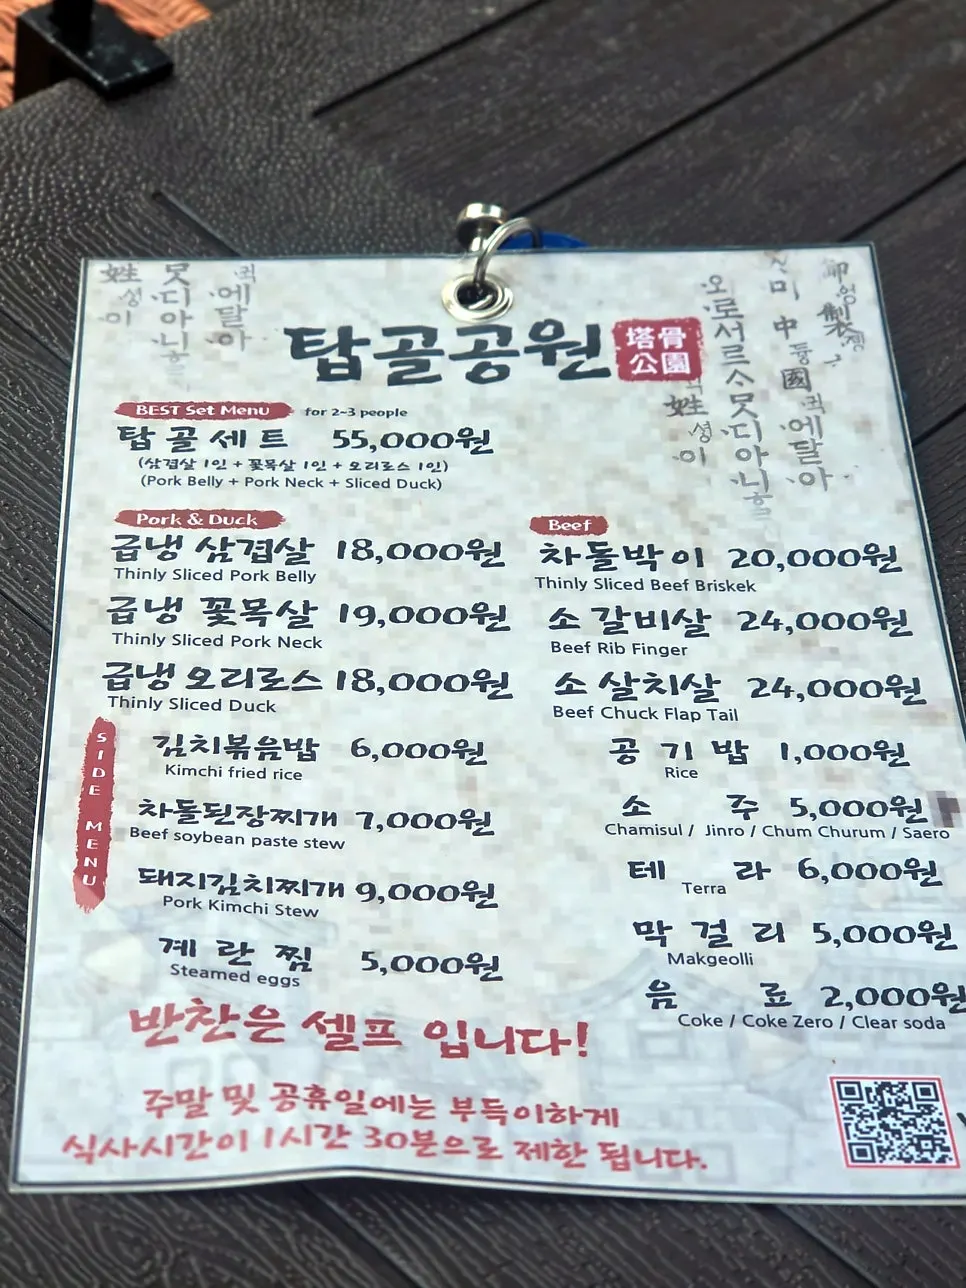 탑골공원
塔骨
公園
BEST Set Menu for 2~3 people
탑골세트 55,000원
(삼겹살 1인 + 꽃목살 1인 + 오리로스 1인)
(Pork Belly + Pork Neck + Sliced Duck)
Pork & Duck
급냉 삼겹살 18,000원
Thinly Sliced Pork Belly
급냉 꽃목살 19,000원
Thinly Sliced Pork Neck
급냉 오리로스 18,000원
Thinly Sliced Duck
Beef
차돌박이 20,000원
Thinly Sliced Beef Briskek
소 갈비살 24,000원
Beef Rib Finger
소 살치살 24,000원
Beef Chuck Flap Tail
SIDE MENU
김치볶음밥 6,000원
Kimchi fried rice
차돌된장찌개 7,000원
Beef soybean paste stew
돼지김치찌개 9,000원
Pork Kimchi Stew
계란찜 5,000원
Steamed eggs
공기밥 1,000원
Rice
소주 5,000원
Chamisul / Jinro / Chum Churum / Saero
테라 6,000원
Terra
막걸리 5,000원
Makgeolli
음료 2,000원
Coke / Coke Zero / Clear soda
반찬은 셀프 입니다!
주말 및 공휴일에는 부득이하게
식사시간이 1시간 30분으로 제한 됩니다.